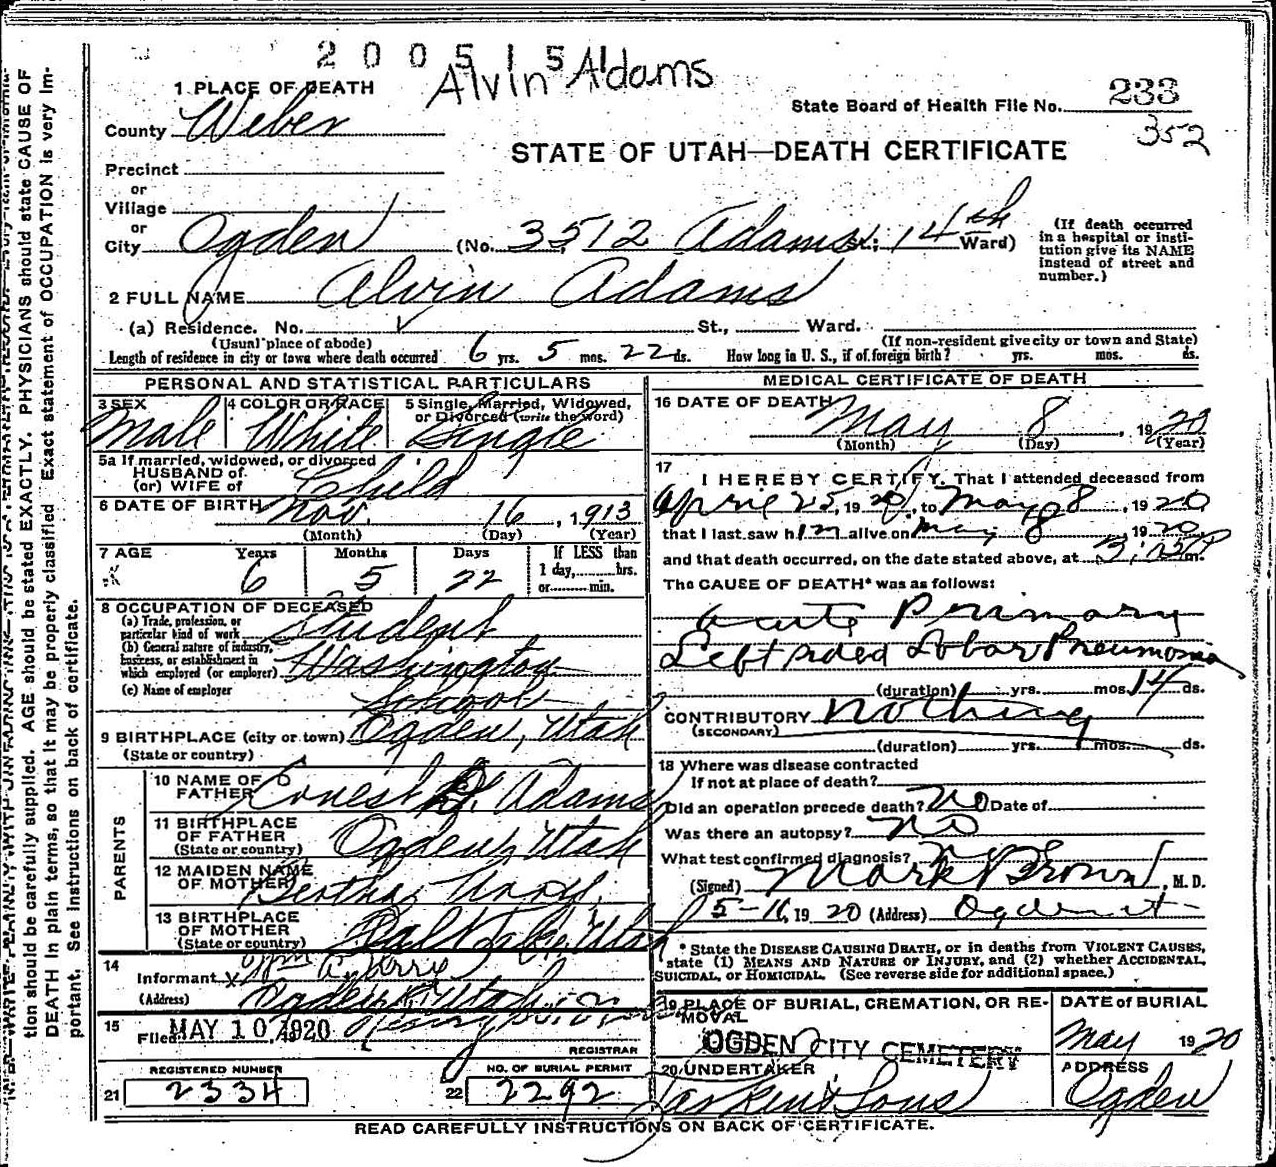 2005151
Alvin Adams
1 PLACE OF DEATH
State Board of Health File No. 233
352
County Weber
STATE OF UTAH—DEATH CERTIFICATE
Precinct
or
Village
or
City Ogden (No. 3512 Adams St.; 14th Ward)
(If death occurred in a hospital or insti-
tution give its NAME
instead of street and
number.)
2 FULL NAME Alvin Adams
(a) Residence. No. St., Ward.
(Usual place of abode) (If non-resident give city or town and State)
Length of residence in city or town where death occurred 6 yrs. 5 mos. 22 ds. How long in U. S., if of foreign birth? yrs. mos. ds.
PERSONAL AND STATISTICAL PARTICULARS
3 SEX Male
4 COLOR OR RACE White
5 Single, Married, Widowed,
or Divorced (write the word)
Single
5a If married, widowed, or divorced
HUSBAND of
(or) WIFE of Child
6 DATE OF BIRTH Nov. 16, 1913
(Month) (Day) (Year)
7 AGE Years Months Days If LESS than
6 5 22 1 day, hrs.
or min.
8 OCCUPATION OF DECEASED
(a) Trade, profession, or
particular kind of work Student
(b) General nature of industry,
business, or establishment in
which employed (or employer) Washington
(c) Name of employer School
9 BIRTHPLACE (city or town) Ogden, Utah
(State or country)
PARENTS
10 NAME OF
FATHER Ernest Adams
11 BIRTHPLACE
OF FATHER
(State or country) Ogden, Utah
12 MAIDEN NAME
OF MOTHER Bertha
13 BIRTHPLACE
OF MOTHER
(State or country) Salt Lake, Utah
14
Informant X Wm
(Address) Ogden, Utah
15 Filed MAY 10 1920 Henry
REGISTRAR
REGISTERED NUMBER
21 2334
NO. OF BURIAL PERMIT
22 2292
MEDICAL CERTIFICATE OF DEATH
16 DATE OF DEATH
May 8, 1920
(Month) (Day) (Year)
17
I HEREBY CERTIFY, That I attended deceased from
April 25, 1920, to May 8, 1920
that I last saw him alive on May 8 1920
and that death occurred, on the date stated above, at m.
The CAUSE OF DEATH* was as follows:
Acute Primary
Left sided Lobar Pneumonia
(duration) yrs. mos. 14 ds.
CONTRIBUTORY Nothing
(SECONDARY)
(duration) yrs. mos. ds.
18 Where was disease contracted
If not at place of death?
Did an operation precede death? No Date of
Was there an autopsy? No
What test confirmed diagnosis?
(Signed) Mark Brown, M. D.
5-16, 1920 (Address) Ogden Ut
* State the DISEASE CAUSING DEATH, or in deaths from VIOLENT CAUSES,
state (1) MEANS AND NATURE OF INJURY, and (2) whether ACCIDENTAL,
SUICIDAL, or HOMICIDAL. (See reverse side for additional space.)
19 PLACE OF BURIAL, CREMATION, OR RE-
MOVAL
OGDEN CITY CEMETERY
DATE of BURIAL
May 1920
20 UNDERTAKER
Larkin & Sons
ADDRESS
Ogden
READ CAREFULLY INSTRUCTIONS ON BACK OF CERTIFICATE.
tion should be carefully supplied. AGE should be stated EXACTLY. PHYSICIANS should state CAUSE OF
DEATH in plain terms, so that it may be properly classified. Exact statement of OCCUPATION is very im-
portant. See instructions on back of certificate.